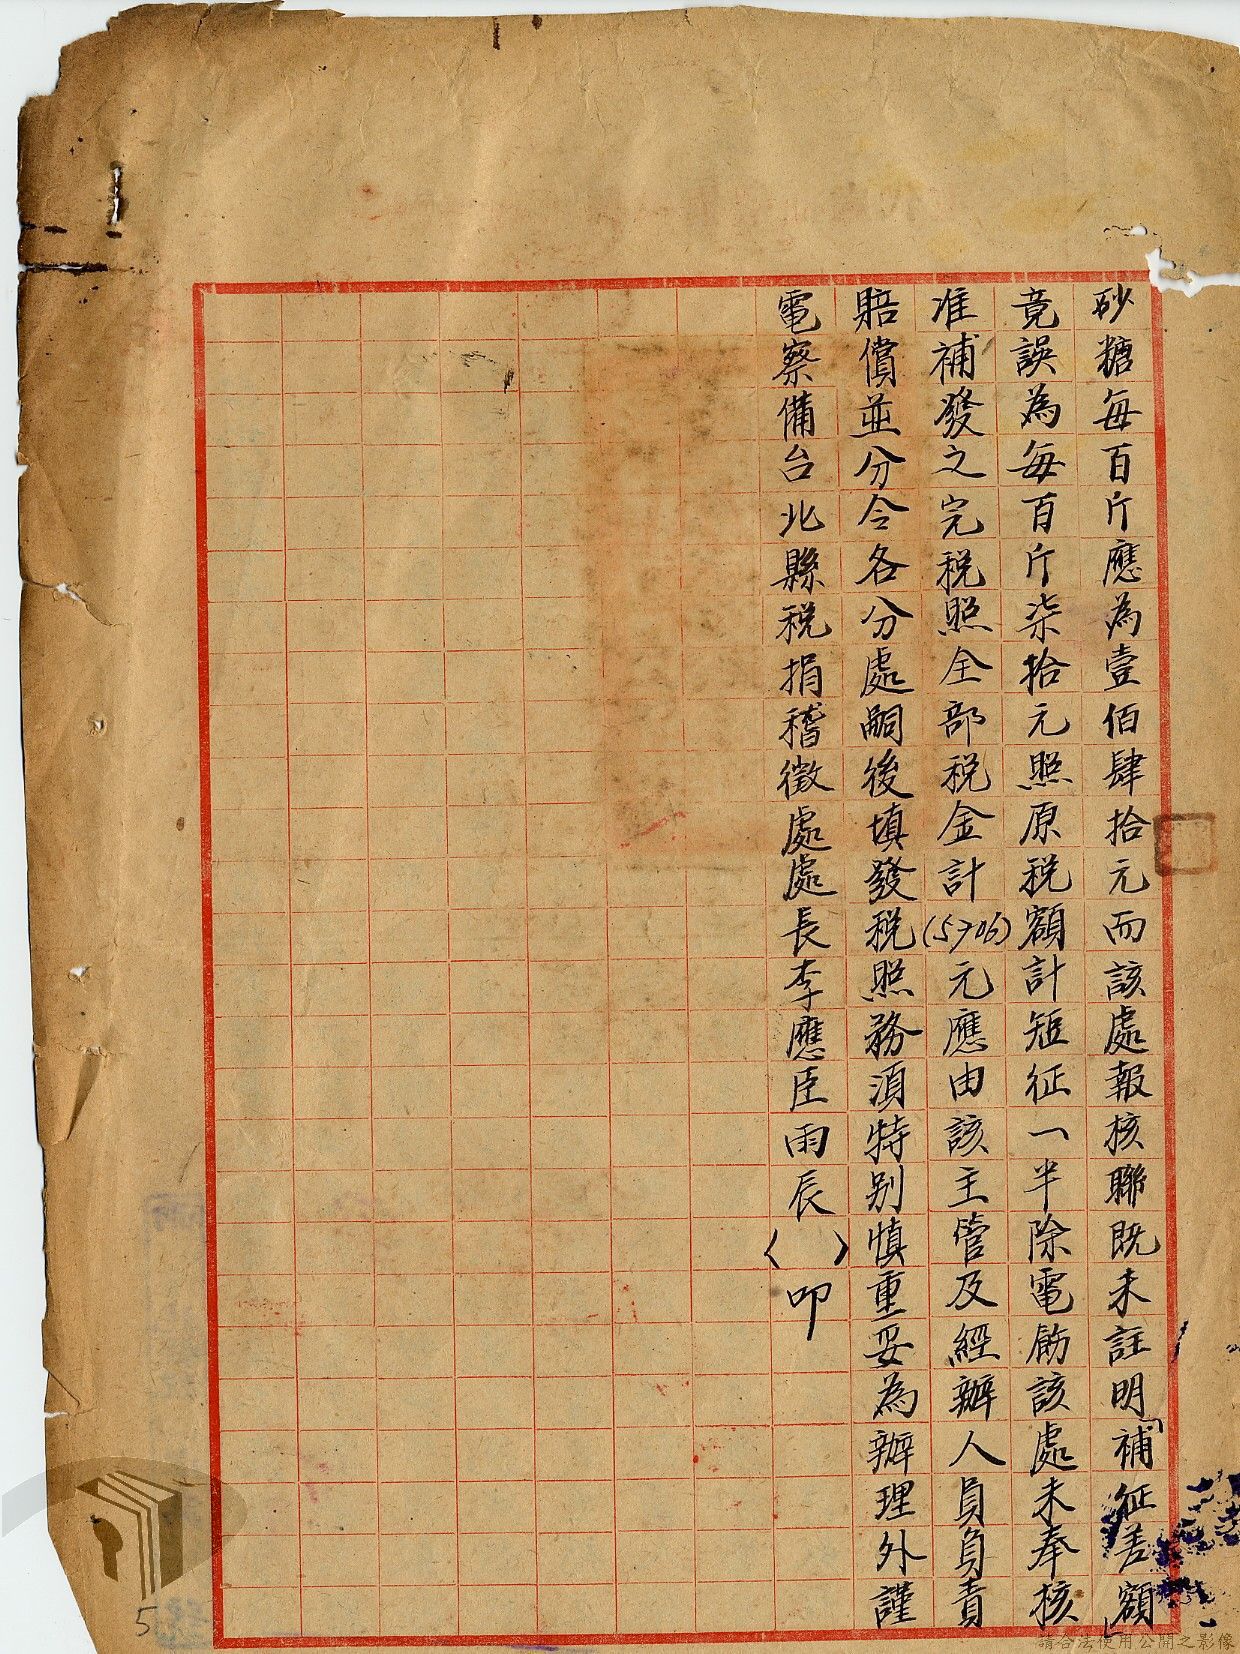 砂糖每百斤應為壹佰肆拾元而該處報核聯既未註明「補征差額」
竟誤為每百斤柒拾元照原稅額計短征一半除電飭該處未奉核
准補發之完稅照全部稅金計(5706)元應由該主管及經辦人員負責
賠償並分令各分處嗣後填發稅照務須特別慎重妥為辦理外謹
電察備台北縣稅捐稽徵處處長李應臣雨辰〈 〉叩
5
請合法使用公開之影像